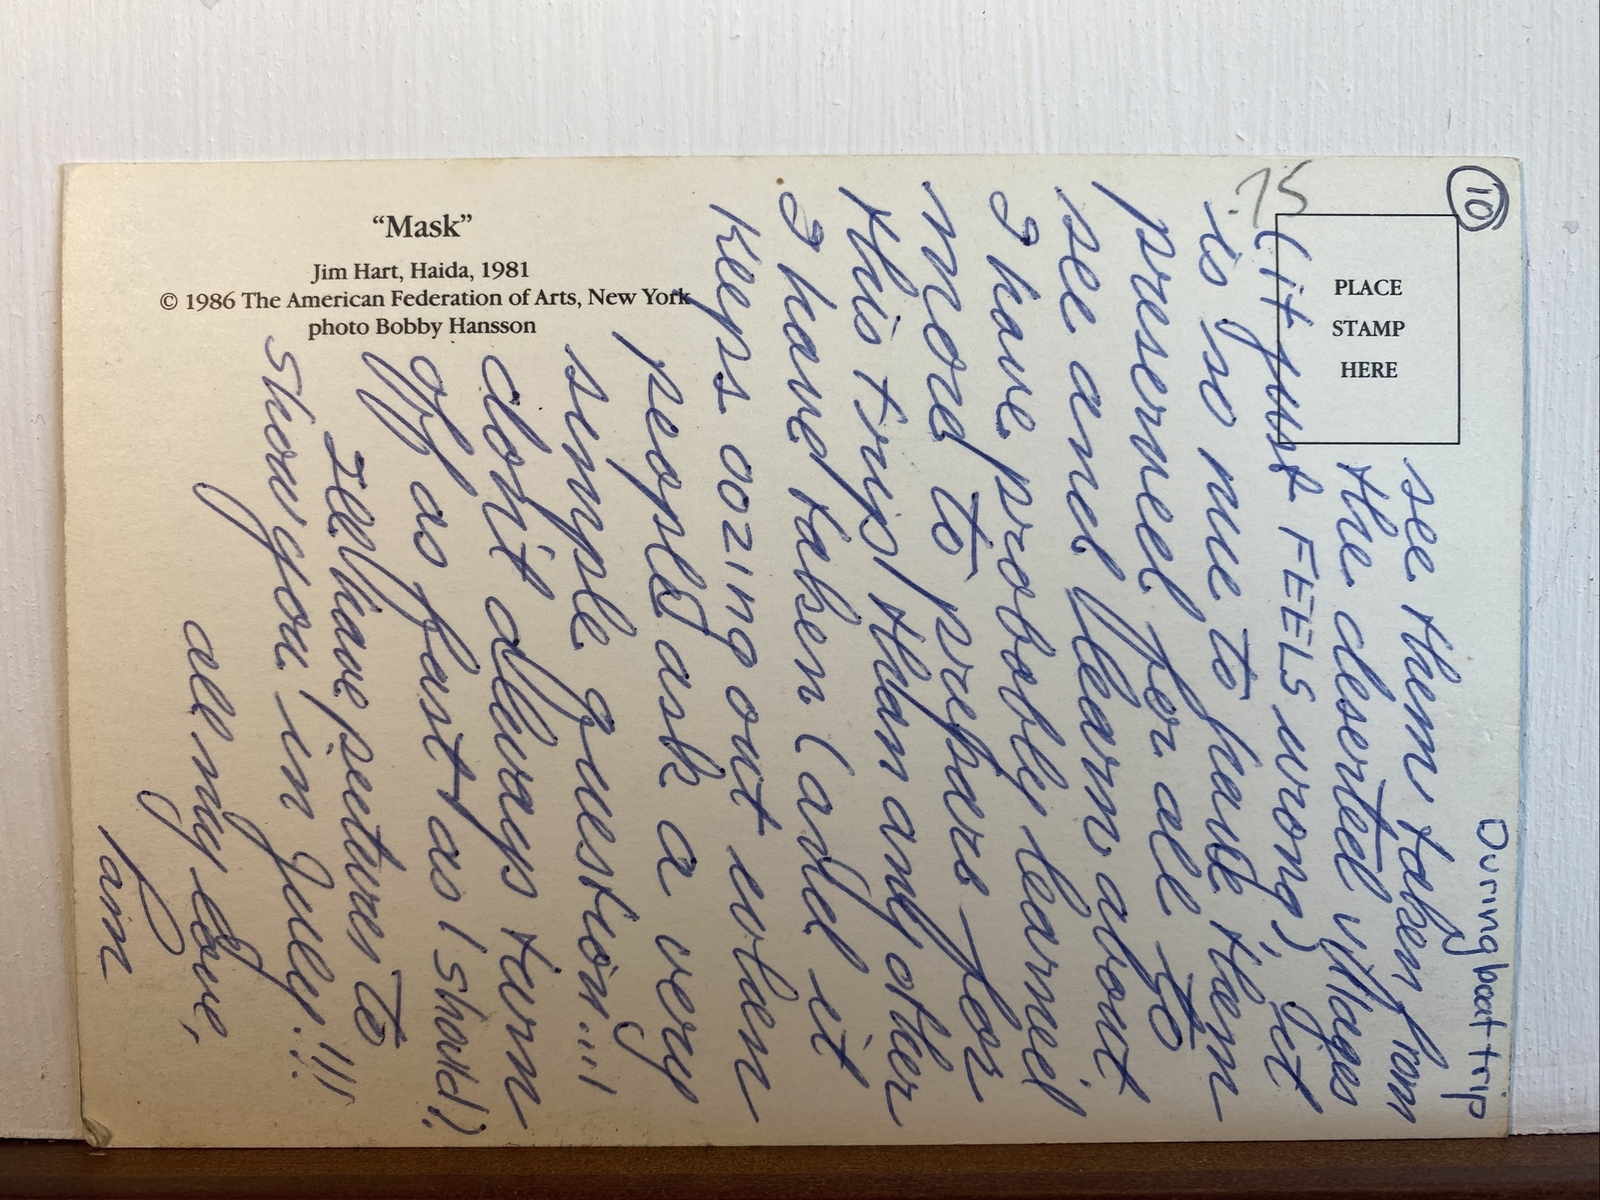 "Mask"
Jim Hart, Haida, 1981
© 1986 The American Federation of Arts, New York
photo Bobby Hansson
PLACE
STAMP
HERE
.75
10
During boat trip
see them taken from
the deserted villages
(it just FEELS wrong), yet
is so nice to have them
preserved for all to
see and learn about
I have probably learned
more to prepare for
this trip than any other
I have taken (and it
keeps oozing out when
people ask a very
simple question....!
don't always turn
off as fast as I should)!
I'll have pictures to
show you in July!!!
all my love,
Pam